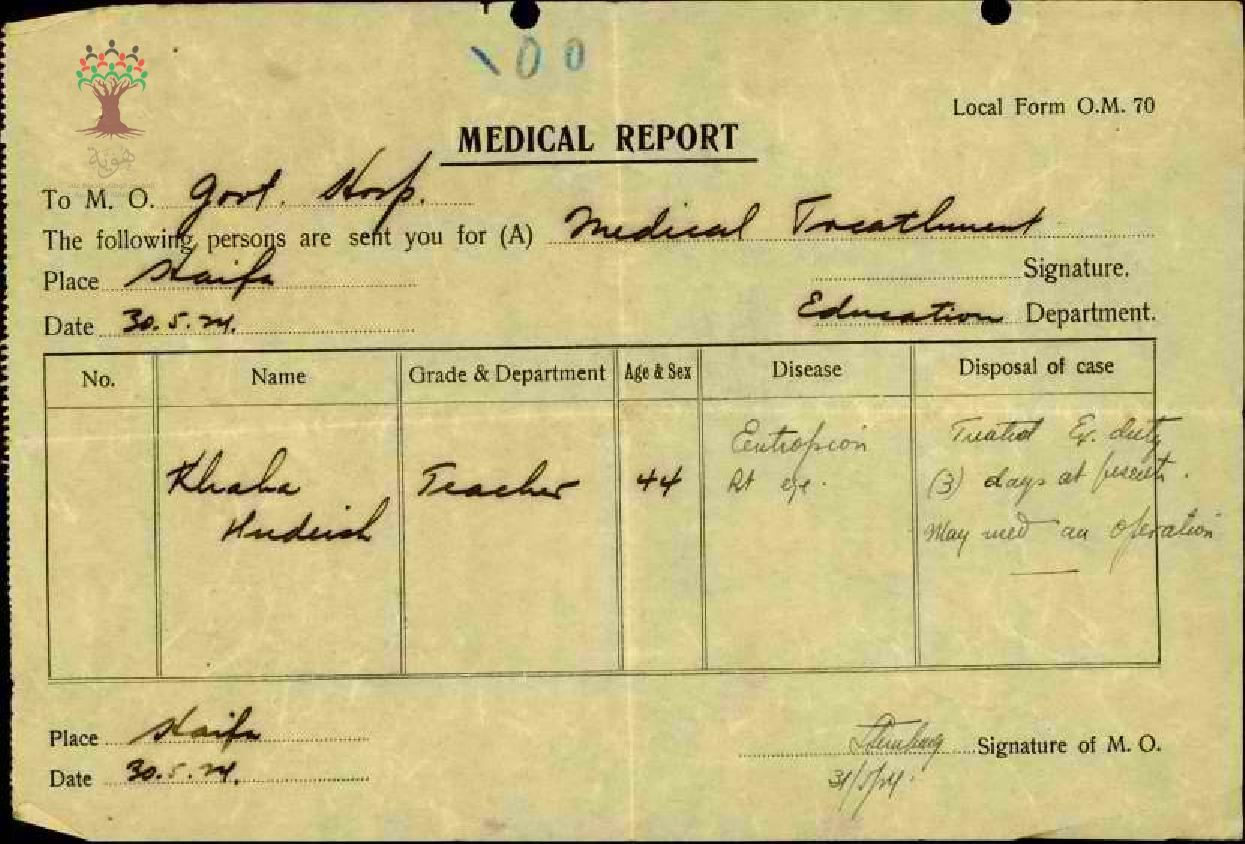 100
هوية
Local Form O.M. 70
MEDICAL REPORT
To M. O. Govt. Hosp.
The following persons are sent you for (A) Medical Treathment
Place Haifa
Signature.
Date 30.5.24.
Education Department.
No. Name Grade & Department Age & Sex Disease Disposal of case
Entropion Treated Ex. duty
Khaha Teacher 44 Rt eye. (3) days at present.
Hudeish May need an operation
Place Haifa
Signature of M. O.
Date 30.5.24.
31/5/24.